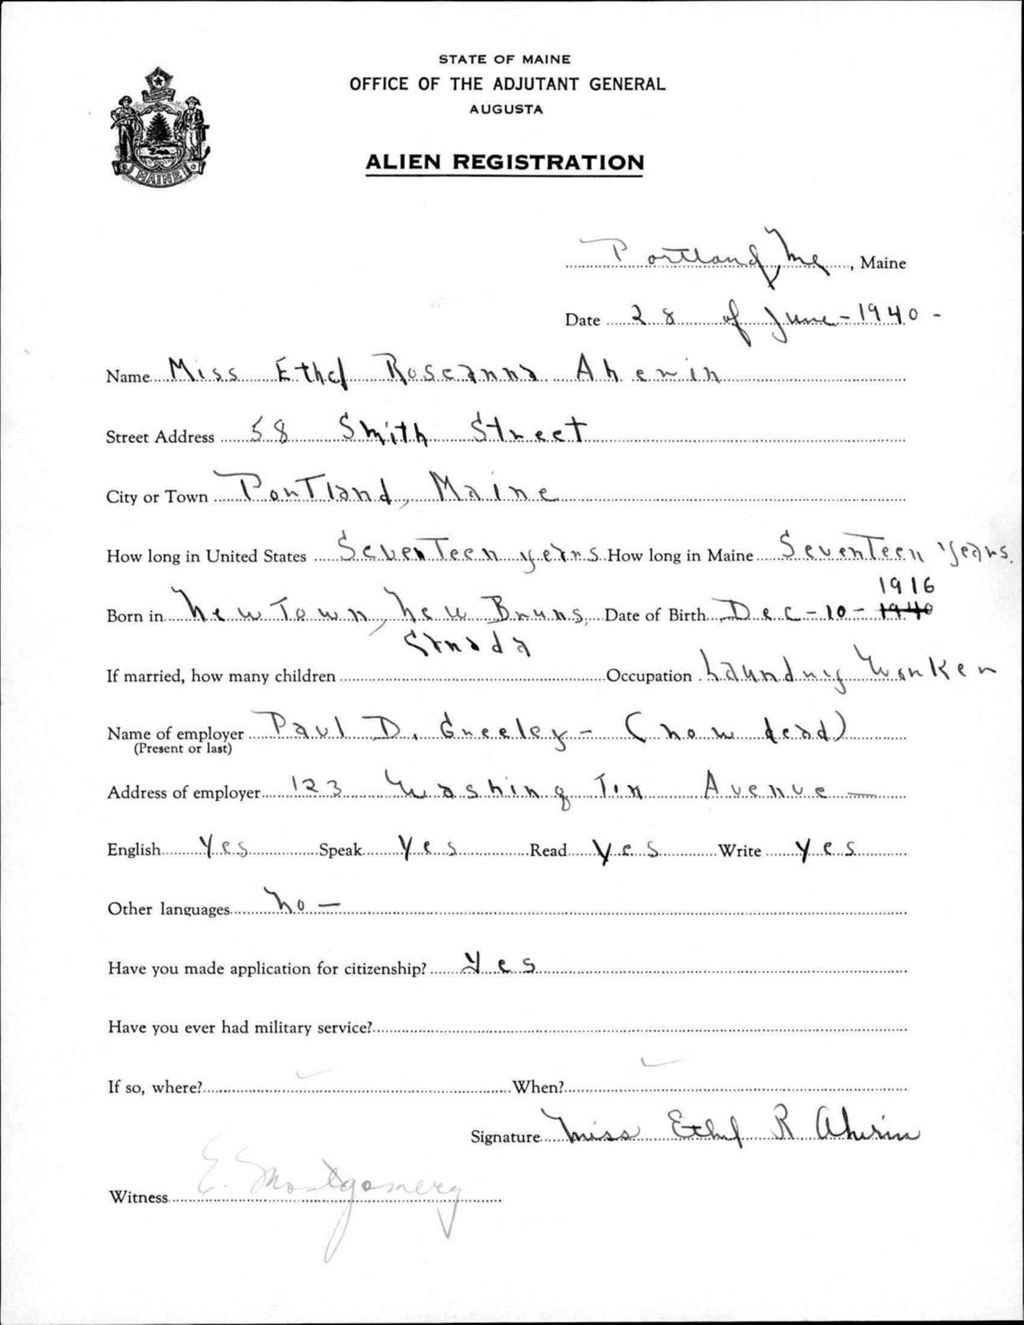 STATE OF MAINE
OFFICE OF THE ADJUTANT GENERAL
AUGUSTA
MAINE
ALIEN REGISTRATION
Portland, Me, Maine
Date 28 of June - 1940 -
Name Miss Ethel Roseanna Aherin
Street Address 58 Smith Street
City or Town Portland, Maine
How long in United States Seventeen years How long in Maine Seventeen years
1916
Born in New Town, New Bruns, Date of Birth Dec - 10 - 1940
Canada
If married, how many children Occupation Laundry Worker
Name of employer Paul D. Greeley - (now dead)
(Present or last)
Address of employer 123 Washington Avenue —
English Yes Speak Yes Read Yes Write Yes
Other languages No —
Have you made application for citizenship? Yes
Have you ever had military service?
If so, where? When?
Signature Miss Ethel R Aherin
Witness E. Montgomery